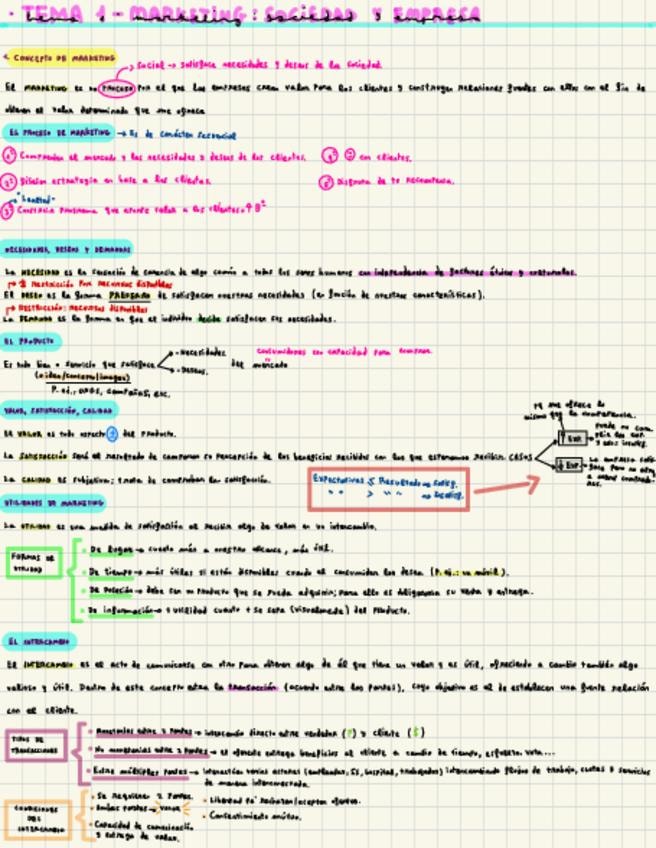 · TEMA 1 - MARKETING: SOCIEDAD Y EMPRESA
CONCEPTO DE MARKETING
Social → satisface necesidades y deseos de la sociedad.
El MARKETING es un PROCESO por el que las empresas crean valor para los clientes y construyen relaciones fuertes con ellos con el fin de
obtener el valor determinado que me ofrece
EL PROCESO DE MARKETING → Es de carácter secuencial
1º Comprender el mercado y las necesidades y deseos de los clientes. 4º con clientes.
2º Diseñar estrategia en base a los clientes. 5º Disfruta de tu recompensa.
"Lealtad"
3º Construir programa que aporte valor a los clientes
NECESIDADES, DESEOS Y DEMANDAS
La NECESIDAD es la sensación de carencia de algo común a todos los seres humanos con independencia de factores étnicos y culturales.
RESTRICCIÓN por recursos disponibles
El DESEO es la forma de satisfacer nuestras necesidades (en función de nuestras características).
RESTRICCIÓN: recursos disponibles
La DEMANDA es la forma en que el individuo decide satisfacer sus necesidades.
EL PRODUCTO
consumidores con capacidad para comprar.
Es todo bien o servicio que satisface - Necesidades - Deseos. del mercado
(o idea/concepto/imagen)
P. ej.: ONGS, campañas, etc.
VALOR, SATISFACCIÓN, CALIDAD
mismo que la competencia.
El VALOR es todo aspecto + del producto.
La SATISFACCIÓN será el resultado de comparar su percepción de los beneficios recibidos con los que esperamos recibir. CASOS
↑ EXP.
↓ EXP.
La CALIDAD es subjetiva: trata de comprobar la satisfacción.
Expectativas ≤ Resultado → Satisf.
" " > " " → Insatisf.
UTILIDADES DE MARKETING
La UTILIDAD es una medida de satisfacción al recibir algo de valor en un intercambio.
FORMAS DE UTILIDAD
De lugar → cuanto más a nuestro alcance, más útil.
De tiempo → más útiles si están disponibles cuando el consumidor los desea (P. ej.: un móvil).
De posesión → debe ser un producto que se pueda adquirir; para ello es obligatoria su venta y entrega.
De información → + utilidad cuanto + se sepa (visualmente) del producto.
EL INTERCAMBIO
El INTERCAMBIO es el acto de comunicarse con otro para obtener algo de él que tiene un valor y es útil, ofreciendo a cambio también algo
valioso y útil. Dentro de este concepto entra la transacción (acuerdo entre las partes), cuyo objetivo es el de establecer una fuerte relación
con el cliente.
TIPOS DE TRANSACCIONES
Monetarias entre 2 partes → intercambio directo entre vendedor (P) y cliente ($)
No monetarias entre 2 partes → el oferente entrega beneficios al cliente a cambio de tiempo, esfuerzo, voto...
Entre múltiples partes → interactúan varios actores (empleador, SS, hospital, trabajador) intercambiando flujos de trabajo, cuotas y servicios
de manera interconectada.
CONDICIONES DEL INTERCAMBIO
· Se requieren 2 partes.
· Ambas partes → valor
· Capacidad de comunicación
y entrega de valor.
· Libertad pa' rechazar/aceptar ofertas.
· Consentimiento mutuo.